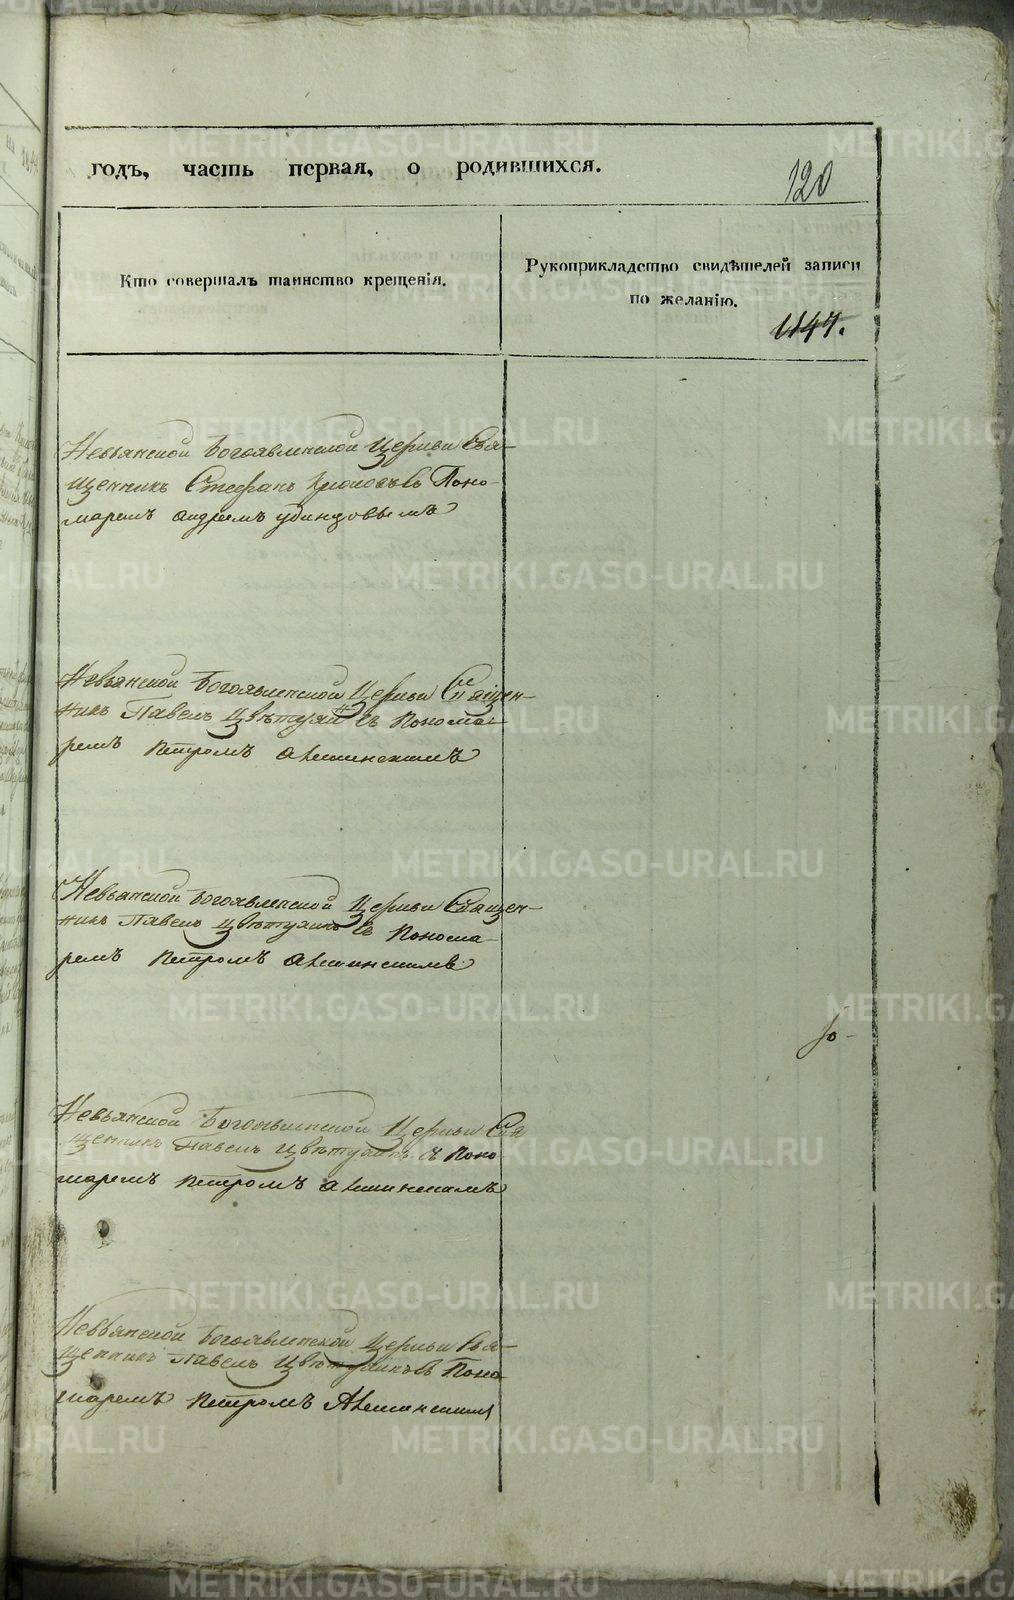 годъ, часть первая, о родившихся.
120
Кто совершалъ таинство крещенія.
Рукоприкладство свидѣтелей записи
по желанію.
1147.
Невьянской Богоявленской Церкви Свя-
щенникъ Стефанъ съ Поно-
маремъ Андреемъ
Невьянской Богоявленской Церкви Священ-
никъ Павелъ Цвѣтухинъ съ Понома-
ремъ Петромъ
Невьянской Богоявленской Церкви Священ-
никъ Павелъ Цвѣтухинъ съ Понома-
ремъ Петромъ
Невьянской Богоявленской Церкви Свя
щенникъ Павелъ Цвѣтухинъ съ Поно
маремъ Петромъ
Невьянской Богоявленской Церкви Свя-
щенникъ Павелъ Цвѣтухинъ съ Поно
маремъ Петромъ
METRIKI.GASO-URAL.RU